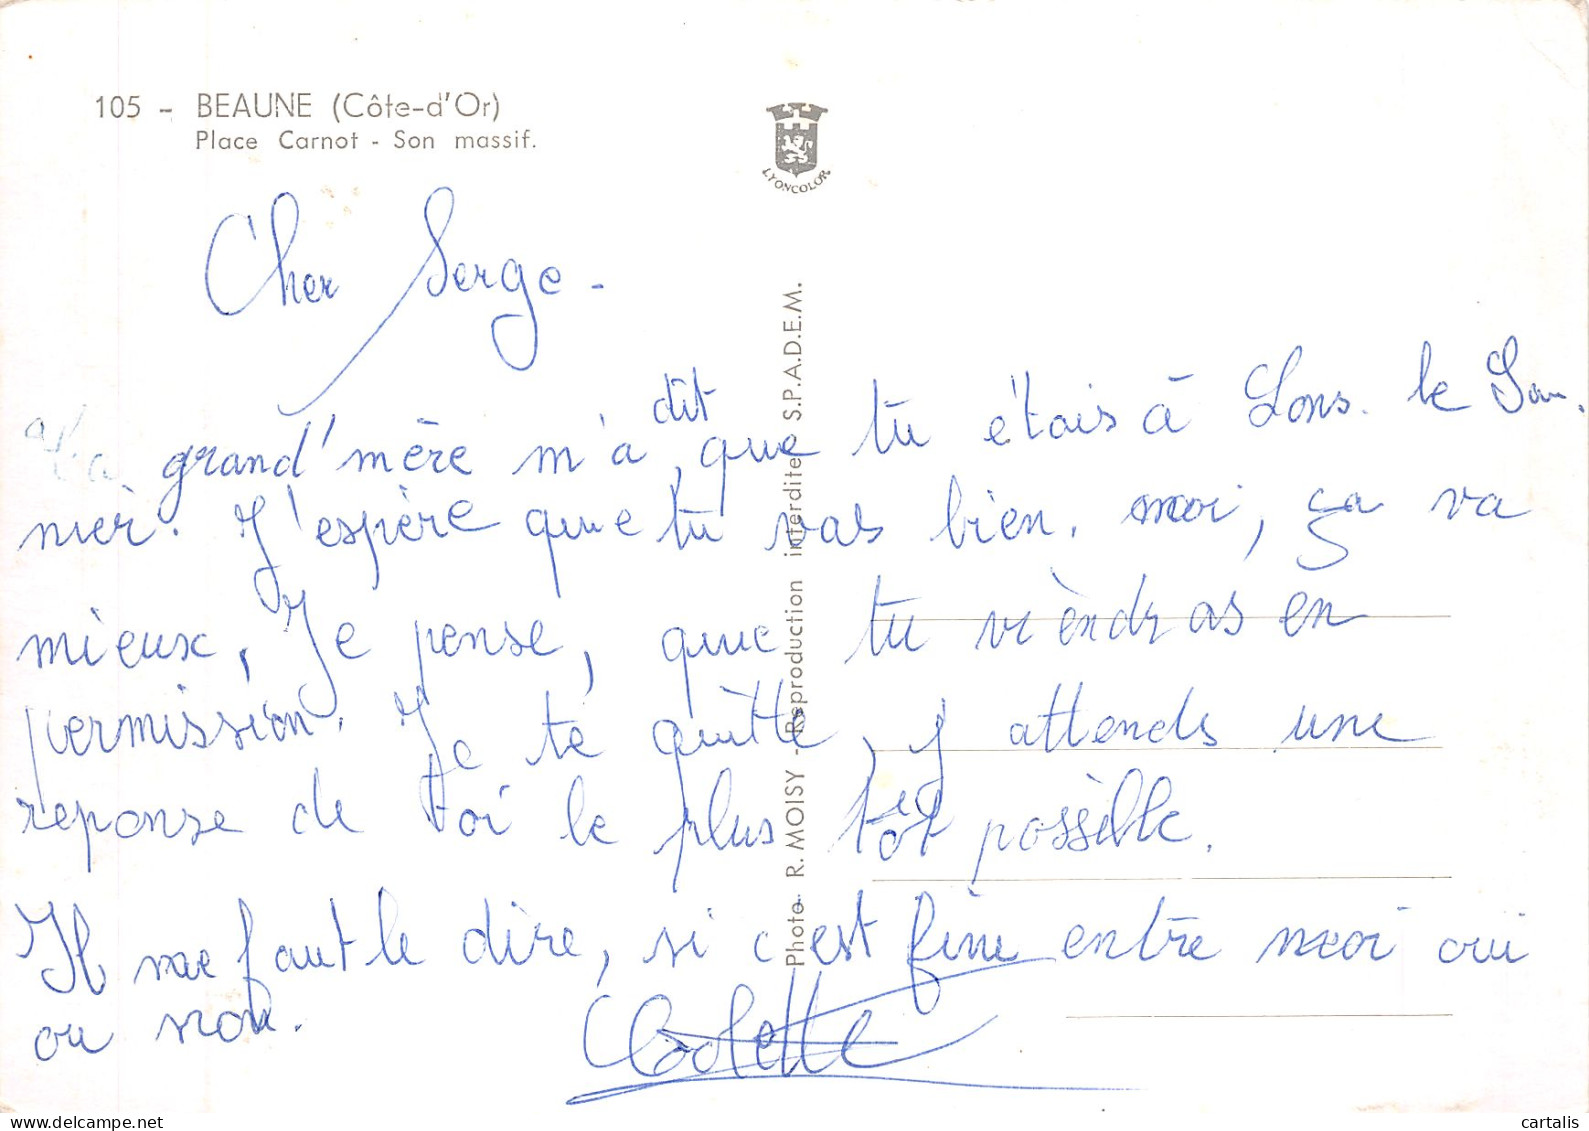 105 - BEAUNE (Côte-d'Or)
Place Carnot - Son massif.
LYONCOLOR
Photo R. MOISY - Reproduction interdite S.P.A.D.E.M.
Cher Serge -
Ta grand'mère m'a dit, que tu étais à Lons. le Sau.
nier. J'espère que tu vas bien. moi, ça va
mieux, Je pense, que tu vièndras en
permission. Je te quitte, j attends une
reponse de toi le plus tôt possible.
Il me faut le dire, si c'est fine entre moi oui
ou non.
Colette
delcampe.net
cartalis